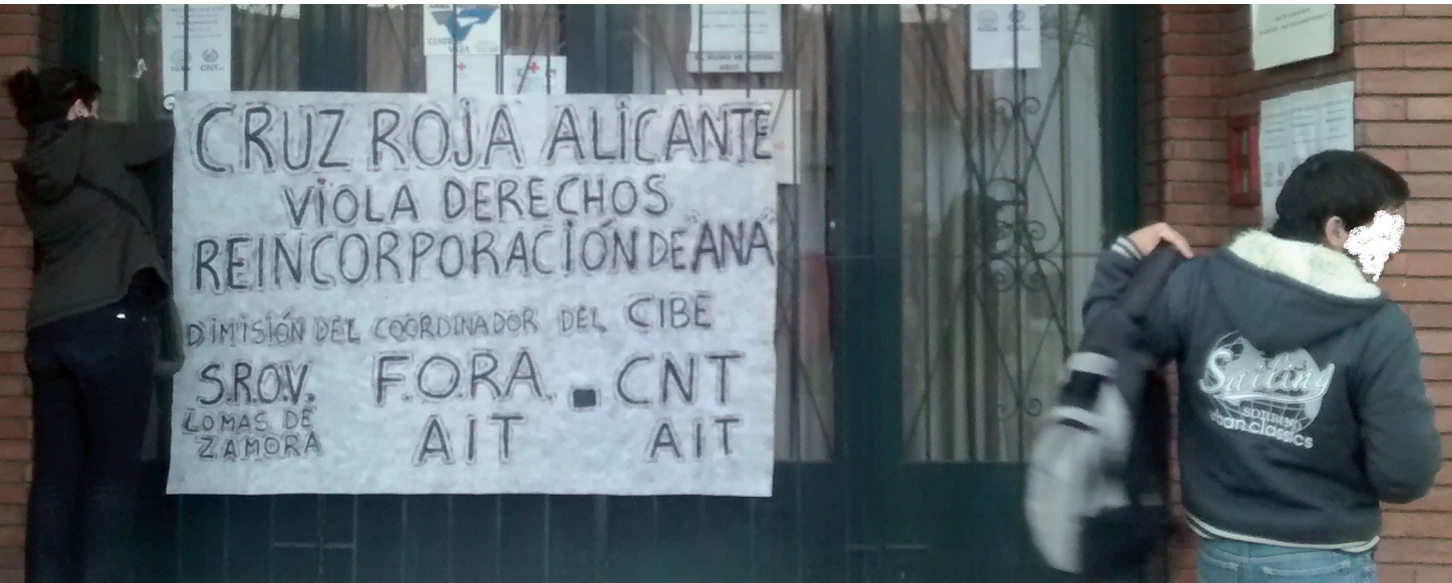 CRUZ ROJA ALICANTE
VIOLA DERECHOS
REINCORPORACIÓN DE "ANA"
DIMISIÓN DEL COORDINADOR DEL CIBE
S.R.O.V. F.O.R.A. . CNT
LOMAS DE ZAMORA AIT AIT
CNT
Sailing